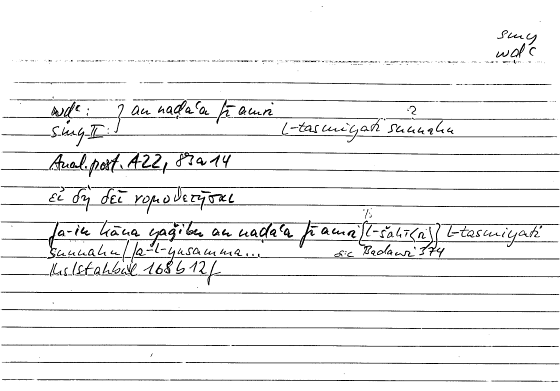 smy
wdʿ
wdʿ: } an naḍaʿa fī amri ?
smy II: l-tasmiyati sunnatan
Anal. post. A 22, 83a14
εἰ δὴ δεῖ νομοθετῆσαι
fa-in kāna yaǧibu an naḍaʿa fī amri l-tasmiyati
sunnatan/fa-l-yusamma... sic Badawi 374
Hs Istanbul 168b12f